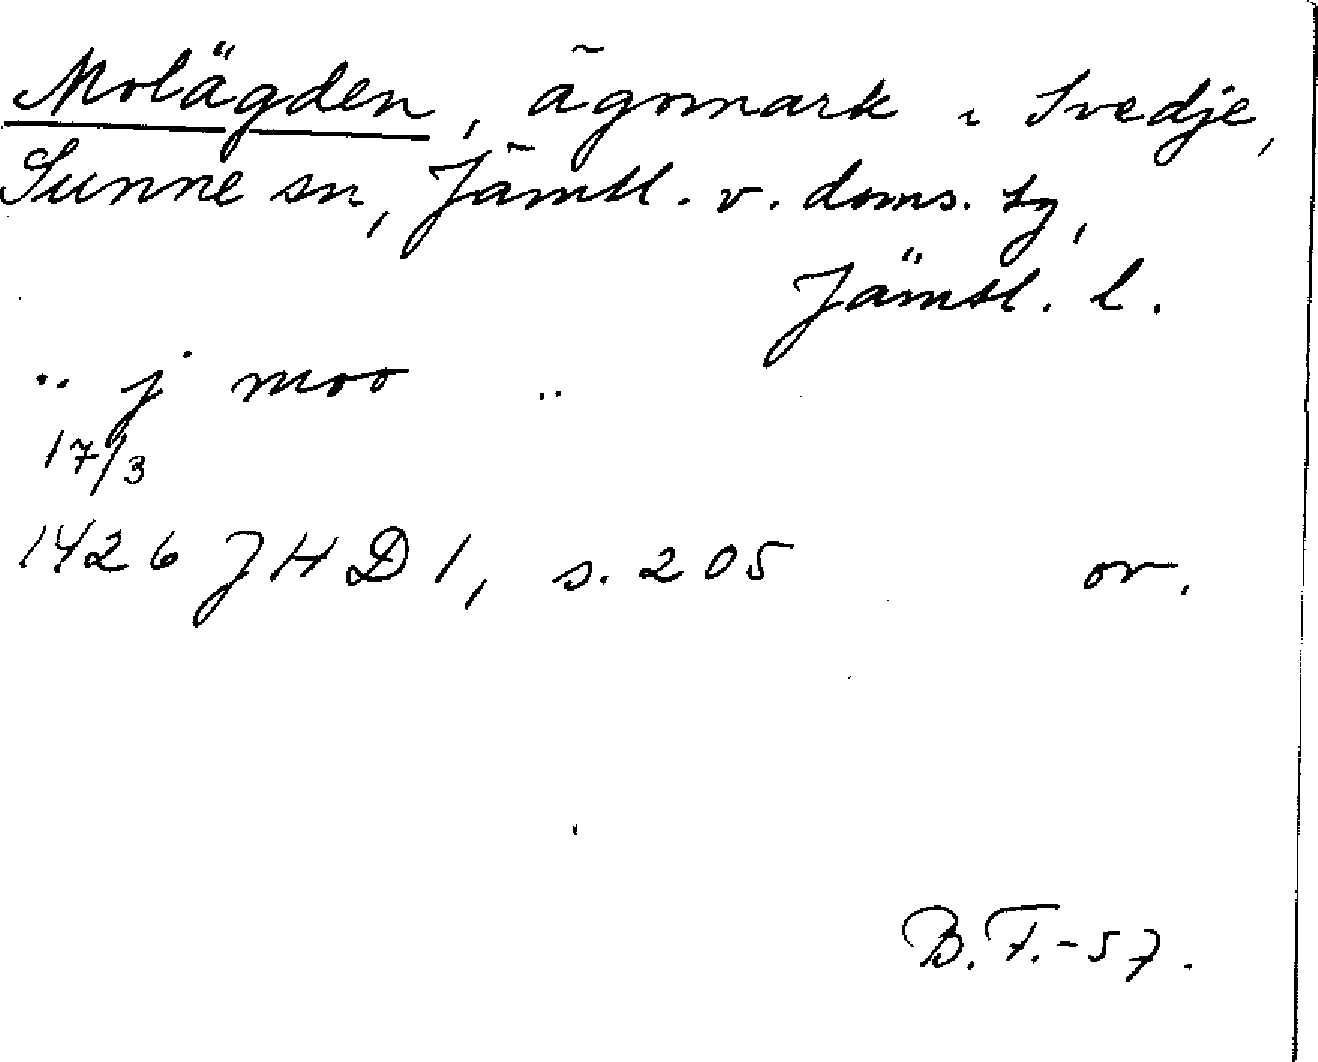 Molägden, ägomark i Svedje,
Sunne sn, Jämtl. v. doms. tg,
Jämtl. l.
.. j moo ..
17/3
1426 JHD 1, s. 205 or.
B.F.-57.